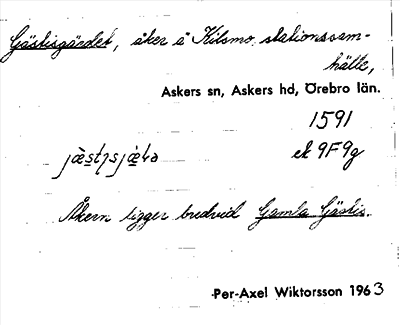 Gästisgärdet, åker å Kilsmo stationssam-
hälle,
Askers sn, Askers hd, Örebro län.
1591
ek 9F9g
Åkern ligger bredvid Gamla Gästis.
Per-Axel Wiktorsson 1963